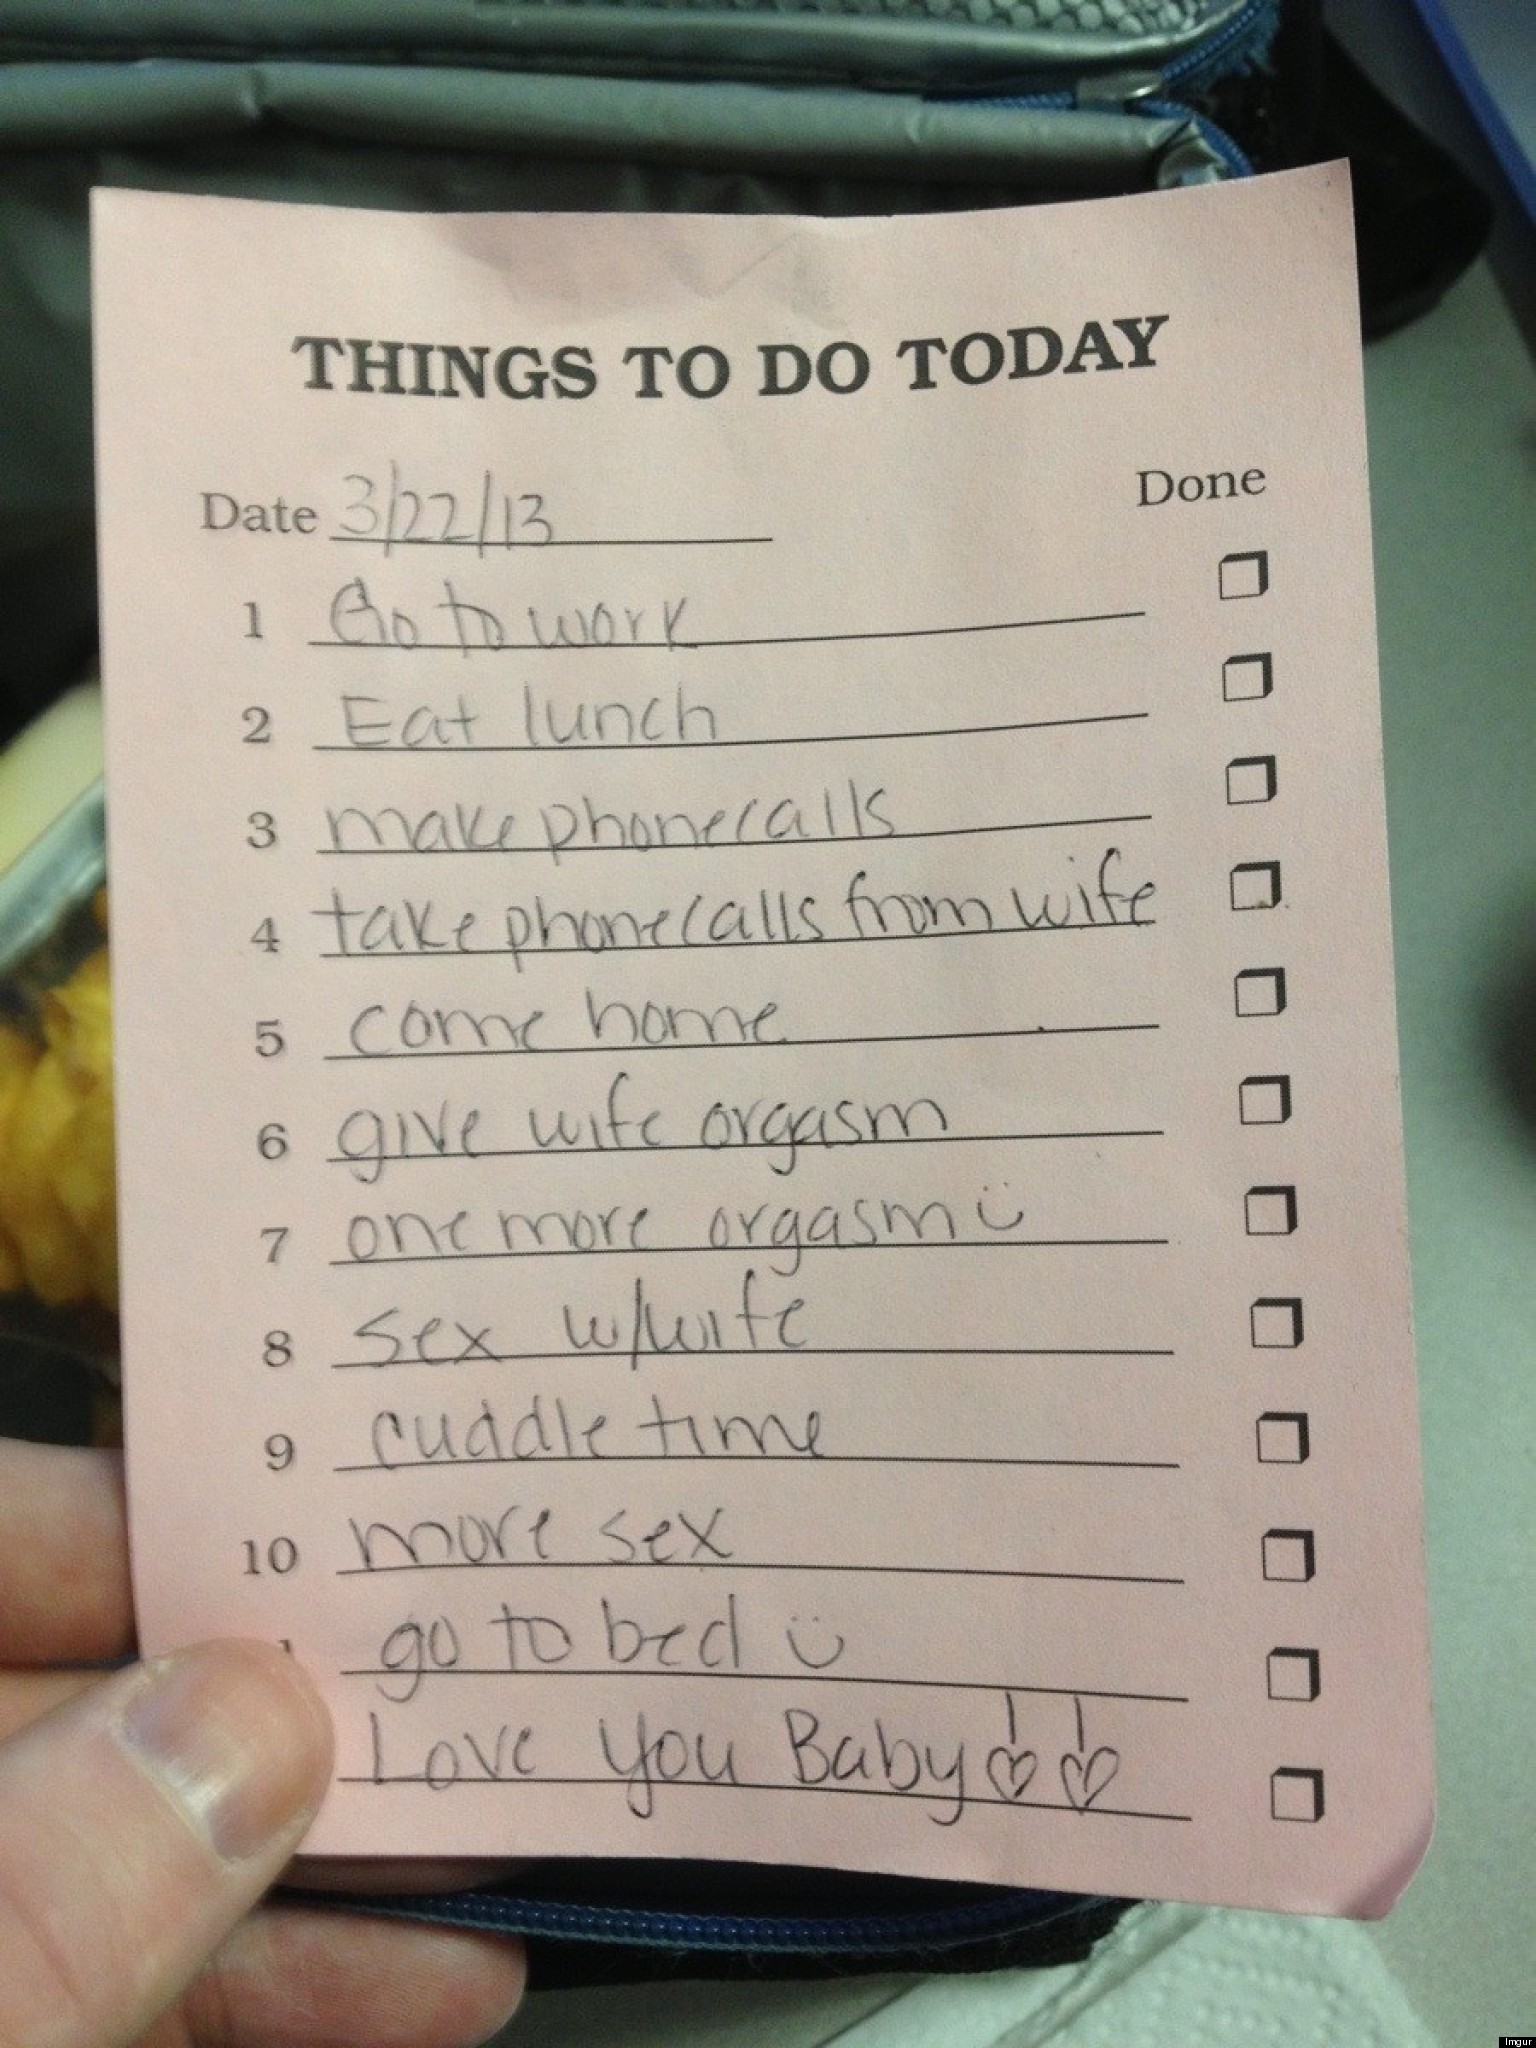 THINGS TO DO TODAY
Date 3/22/13 Done
1 Go to work
2 Eat lunch
3 make phonecalls
4 take phonecalls from wife
5 come home
6 give wife orgasm
7 one more orgasm
8 sex w/wife
9 cuddle time
10 more sex
go to bed
Love you Baby
Imgur